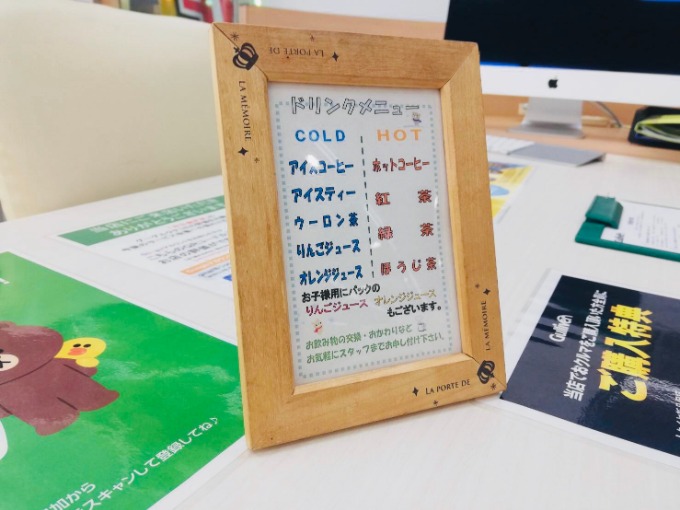 LA PORTE DE
LA MÉMOIRE
ドリンクメニュー
COLD
HOT
アイスコーヒー
ホットコーヒー
アイスティー
紅 茶
ウーロン茶
緑 茶
りんごジュース
ほうじ茶
オレンジジュース
お子様用にパックの
りんごジュース オレンジジュース
もございます。
お飲み物の交換・おかわりなど
お気軽にスタッフまでお申し付け下さい。
LA MÉMOIRE
LA PORTE DE
加から
スキャンして登録してね♪
Gulliver
当店でおクルマをご購入頂いた方全員に
ご購入特典